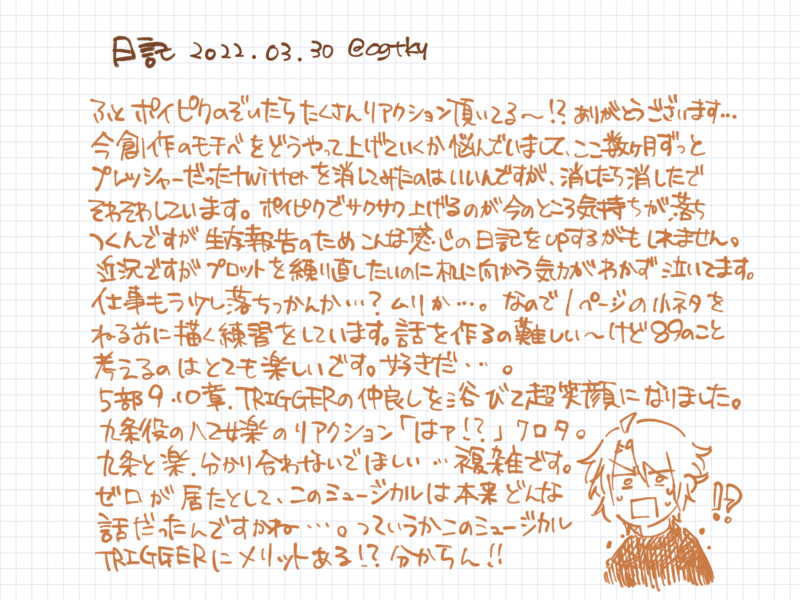 日記 2022.03.30 @ogtky
ふと ポイピクのぞいたら たくさんリアクション頂いてる〜!? ありがとうございます…
今 創作のモチベをどうやって上げていくか悩んでいまして、ここ数ヶ月ずっと
プレッシャーだったtwitterを消してみたのはいいんですが、消したら消したで
そわそわしています。ポイピクでサクサク上げるのが今のところ気持ちが落ち
つくんですが 生存報告のため こんな感じの日記をupするかもしれません。
近況ですが プロットを練り直したいのに机に向かう気力がわかず 泣いてます。
仕事もう少し落ちつかんか…?ムリか…。なので1ページの小ネタを
ねる前に描く練習をしています。話を作るの難しい〜けど 89のこと
考えるのはとても楽しいです。好きだ…。
5部9.10章.TRIGGERの仲良しを浴びて超笑顔になりました。
九条役の八乙女楽のリアクション「はァ!?」ワロタ。
九条と楽.分かり合わないでほしい…複雑です。
ゼロが居たとして、このミュージカルは本来どんな
話だったんですかね…。っていうかこのミュージカル
TRIGGERにメリットある!?分からん!!
!?